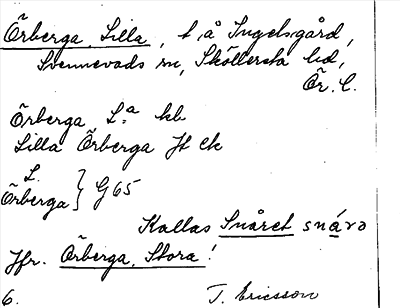 Örberga, Lilla, t. å Ingelsgård,
Svennevads sn, Sköllersta hd,
Ör. l.
Örberga L:a kb
Lilla Örberga Jf Ek
L.
Örberga } G 65
Kallas Snåret snårə
Jfr. Örberga, Stora!
6. T. Ericsson